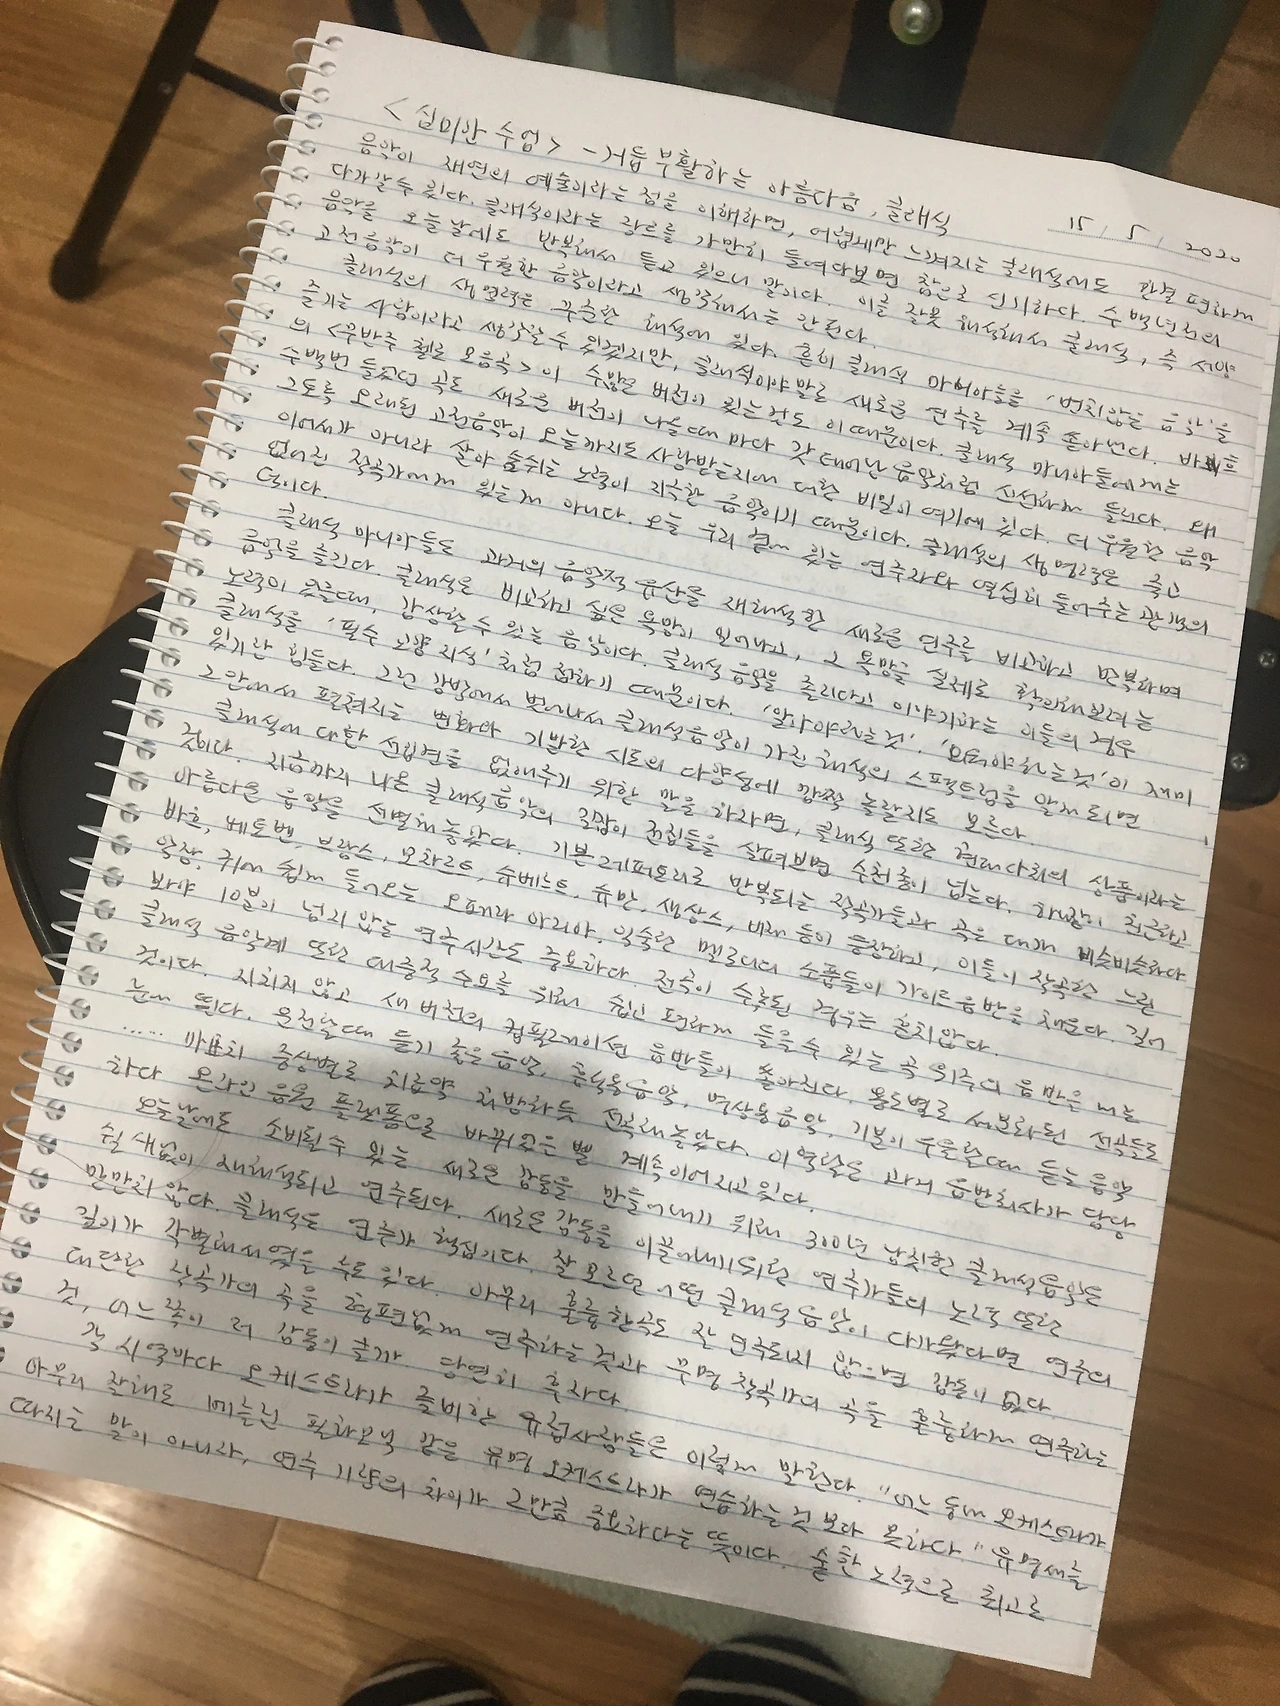 <심미안 수업> - 거듭 부활하는 아름다움, 클래식
15 / 5 / 2020
음악이 재연의 예술이라는 점을 이해하면, 어렵게만 느껴지는 클래식에도 한결 편하게
다가갈 수 있다. 클래식이라는 장르를 가만히 들여다보면 참으로 신기하다. 수백년전의
음악을 오늘날에도 반복해서 듣고 있으니 말이다. 이를 잘못 해석해서 클래식, 즉 서양
고전음악이 더 우월한 음악이라고 생각해서는 안된다.
클래식의 생명력은 꾸준한 해석에 있다. 흔히 클래식 마니아들을 '변치않는 음악'을
즐기는 사람이라고 생각할 수 있겠지만, 클래식이야말로 새로운 연주를 계속 쏟아낸다. 바흐
의 <무반주 첼로 모음곡>이 수많은 버전이 있는것도 이때문이다. 클래식 마니아들에게는
수백번 들었던 곡도 새로운 버전이 나올때마다 갓 태어난 음악처럼 신선하게 들린다. 왜
그토록 오래된 고전음악이 오늘까지도 사랑받는지에 대한 비밀이 여기에 있다. 더 우월한 음악
이어서가 아니라 살아 숨쉬는 노력이 지극한 음악이기 때문이다. 클래식의 생명력은 죽고
없어진 작곡가에게 있는게 아니다. 오늘 우리 곁에 있는 연주자와 열심히 들어주는 관객의
덕이다.
클래식 마니아들도 과거의 음악적 유산을 재해석한 새로운 연주를 비교하고 반복하며
음악을 즐긴다. 클래식은 비교하고 싶은 욕망이 일어나고, 그 욕망을 실제로 확인해보려는
노력이 있을때, 감상할 수 있는 음악이다. 클래식 음악을 졸리다고 이야기하는 이들의 경우
클래식을 '필수 교양 지식'처럼 접하기 때문이다. '알아야하는것', '외워야하는것'이 재미
있기란 힘들다. 그런 강박에서 벗어나서 클래식음악이 가진 해석의 스펙트럼을 알게 되면
그 안에서 펼쳐지는 변화와 기발한 시도의 다양성에 깜짝 놀랄지도 모른다.
클래식에 대한 선입견을 없애주기 위한 말을 하자면, 클래식 또한 현대사회의 상품이라는
것이다. 지금까지 나온 클래식음악의 전집들을 살펴보면 수천종이 넘는다. 하나같이 최고라고
아름다운 음악을 선별해놓았다. 기본 레퍼토리로 반복되는 작곡가들과 곡은 대개 비슷비슷하다
바흐, 베토벤, 브람스, 모차르트, 슈베르트, 슈만, 생상스, 비제 등이 등장하고, 이들이 작곡한 느린
악장. 귀에 쉽게 들어오는 오페라 아리아. 익숙한 멜로디의 소품들이 가이드음반을 채운다. 길어
봐야 10분이 넘지 않는 연주시간도 중요하다. 전곡이 수록된 경우는 흔치않다.
클래식 음악계 또한 대중적 수요를 위해 쉽고 편하게 들을수 있는 곡 위주의 음반을 내는
것이다. 지치지 않고 새 버전의 컴필레이션 음반들이 쏟아진다. 용도별로 세분화된 선곡들도
눈에 띈다. 운전할때 듣기 좋은 음악, 휴식용음악, 명상용음악, 기분이 우울할때 듣는 음악
...... 마치 증상별로 치료약 처방하듯 선곡해놓았다. 이 역할은 과거 음반회사가 담당
하다 온라인 음원 플랫폼으로 바뀌었을 뿐 계속 이어지고 있다.
오늘날에도 소비될수 있는 새로운 감동을 만들어내기 위해 300년 남짓한 클래식음악은
쉴새없이 재해석되고 연주된다. 새로운 감동을 이끌어내기위한 연주가들의 노력 또한
만만치 않다. 클래식도 연주가 핵심이다. 잘 모르던 어떤 클래식음악이 다가왔다면 연주의
깊이가 각별해서였을 수도 있다. 아무리 훌륭한곡도 잘 연주되지 않으면 감동이 없다.
대단한 작곡가의 곡을 형편없게 연주하는 것과 무명 작곡가의 곡을 훌륭하게 연주하는
것, 어느쪽이 더 감동이 클까 당연히 후자다
각 지역마다 오케스트라가 즐비한 유럽사람들은 이렇게 말한다. "어느 동네 오케스트라가
아무리 잘해도 베를린 필하모닉 같은 유명 오케스트라가 연습하는것 보다 못하다." 유명세를
따지는 말이 아니라, 연주 기량의 차이가 그만큼 중요하다는 뜻이다. 숱한 노력으로 최고로